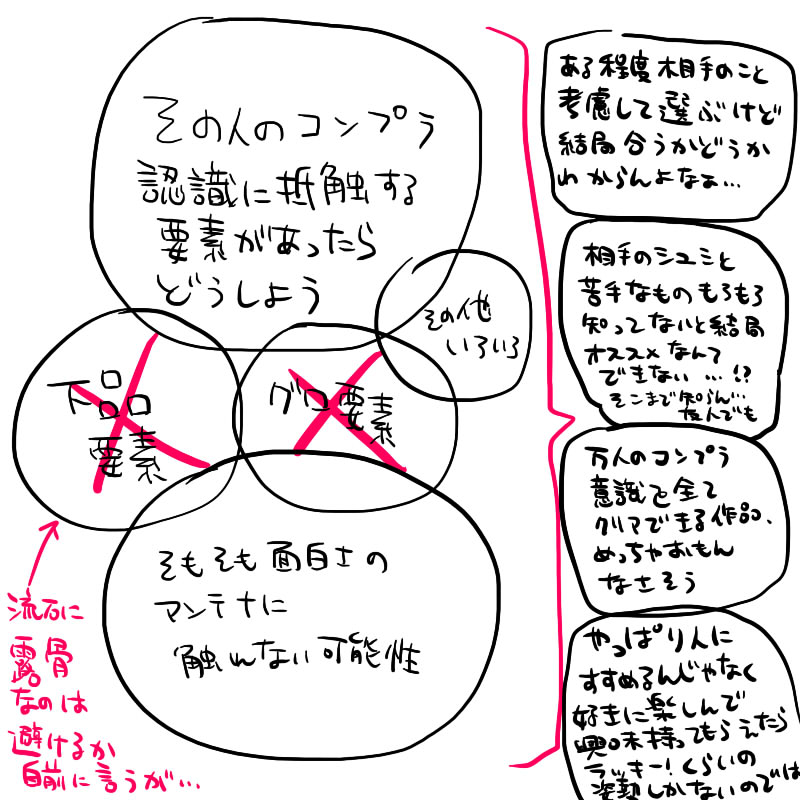 その人のコンプラ
認識に抵触する
要素があったら
どうしよう
その他
いろいろ
下品
要素
グロ要素
そもそも面白さの
アンテナに
触れない可能性
流石に
露骨
なのは
避けるか
事前に言うが…
ある程度相手のこと
考慮して選ぶけど
結局合うかどうか
わからんよなぁ…
相手のシュミと
苦手なものもろもろ
知ってないと結局
オススメなんて
できない…!?
そこまで知らん…
友人でも
万人のコンプラ
意識を全て
クリアできる作品、
めっちゃおもん
なさそう
やっぱり人に
すすめるんじゃなく
好きに楽しんで
興味持ってもらえたら
ラッキー!くらいの
姿勢しかないのでは